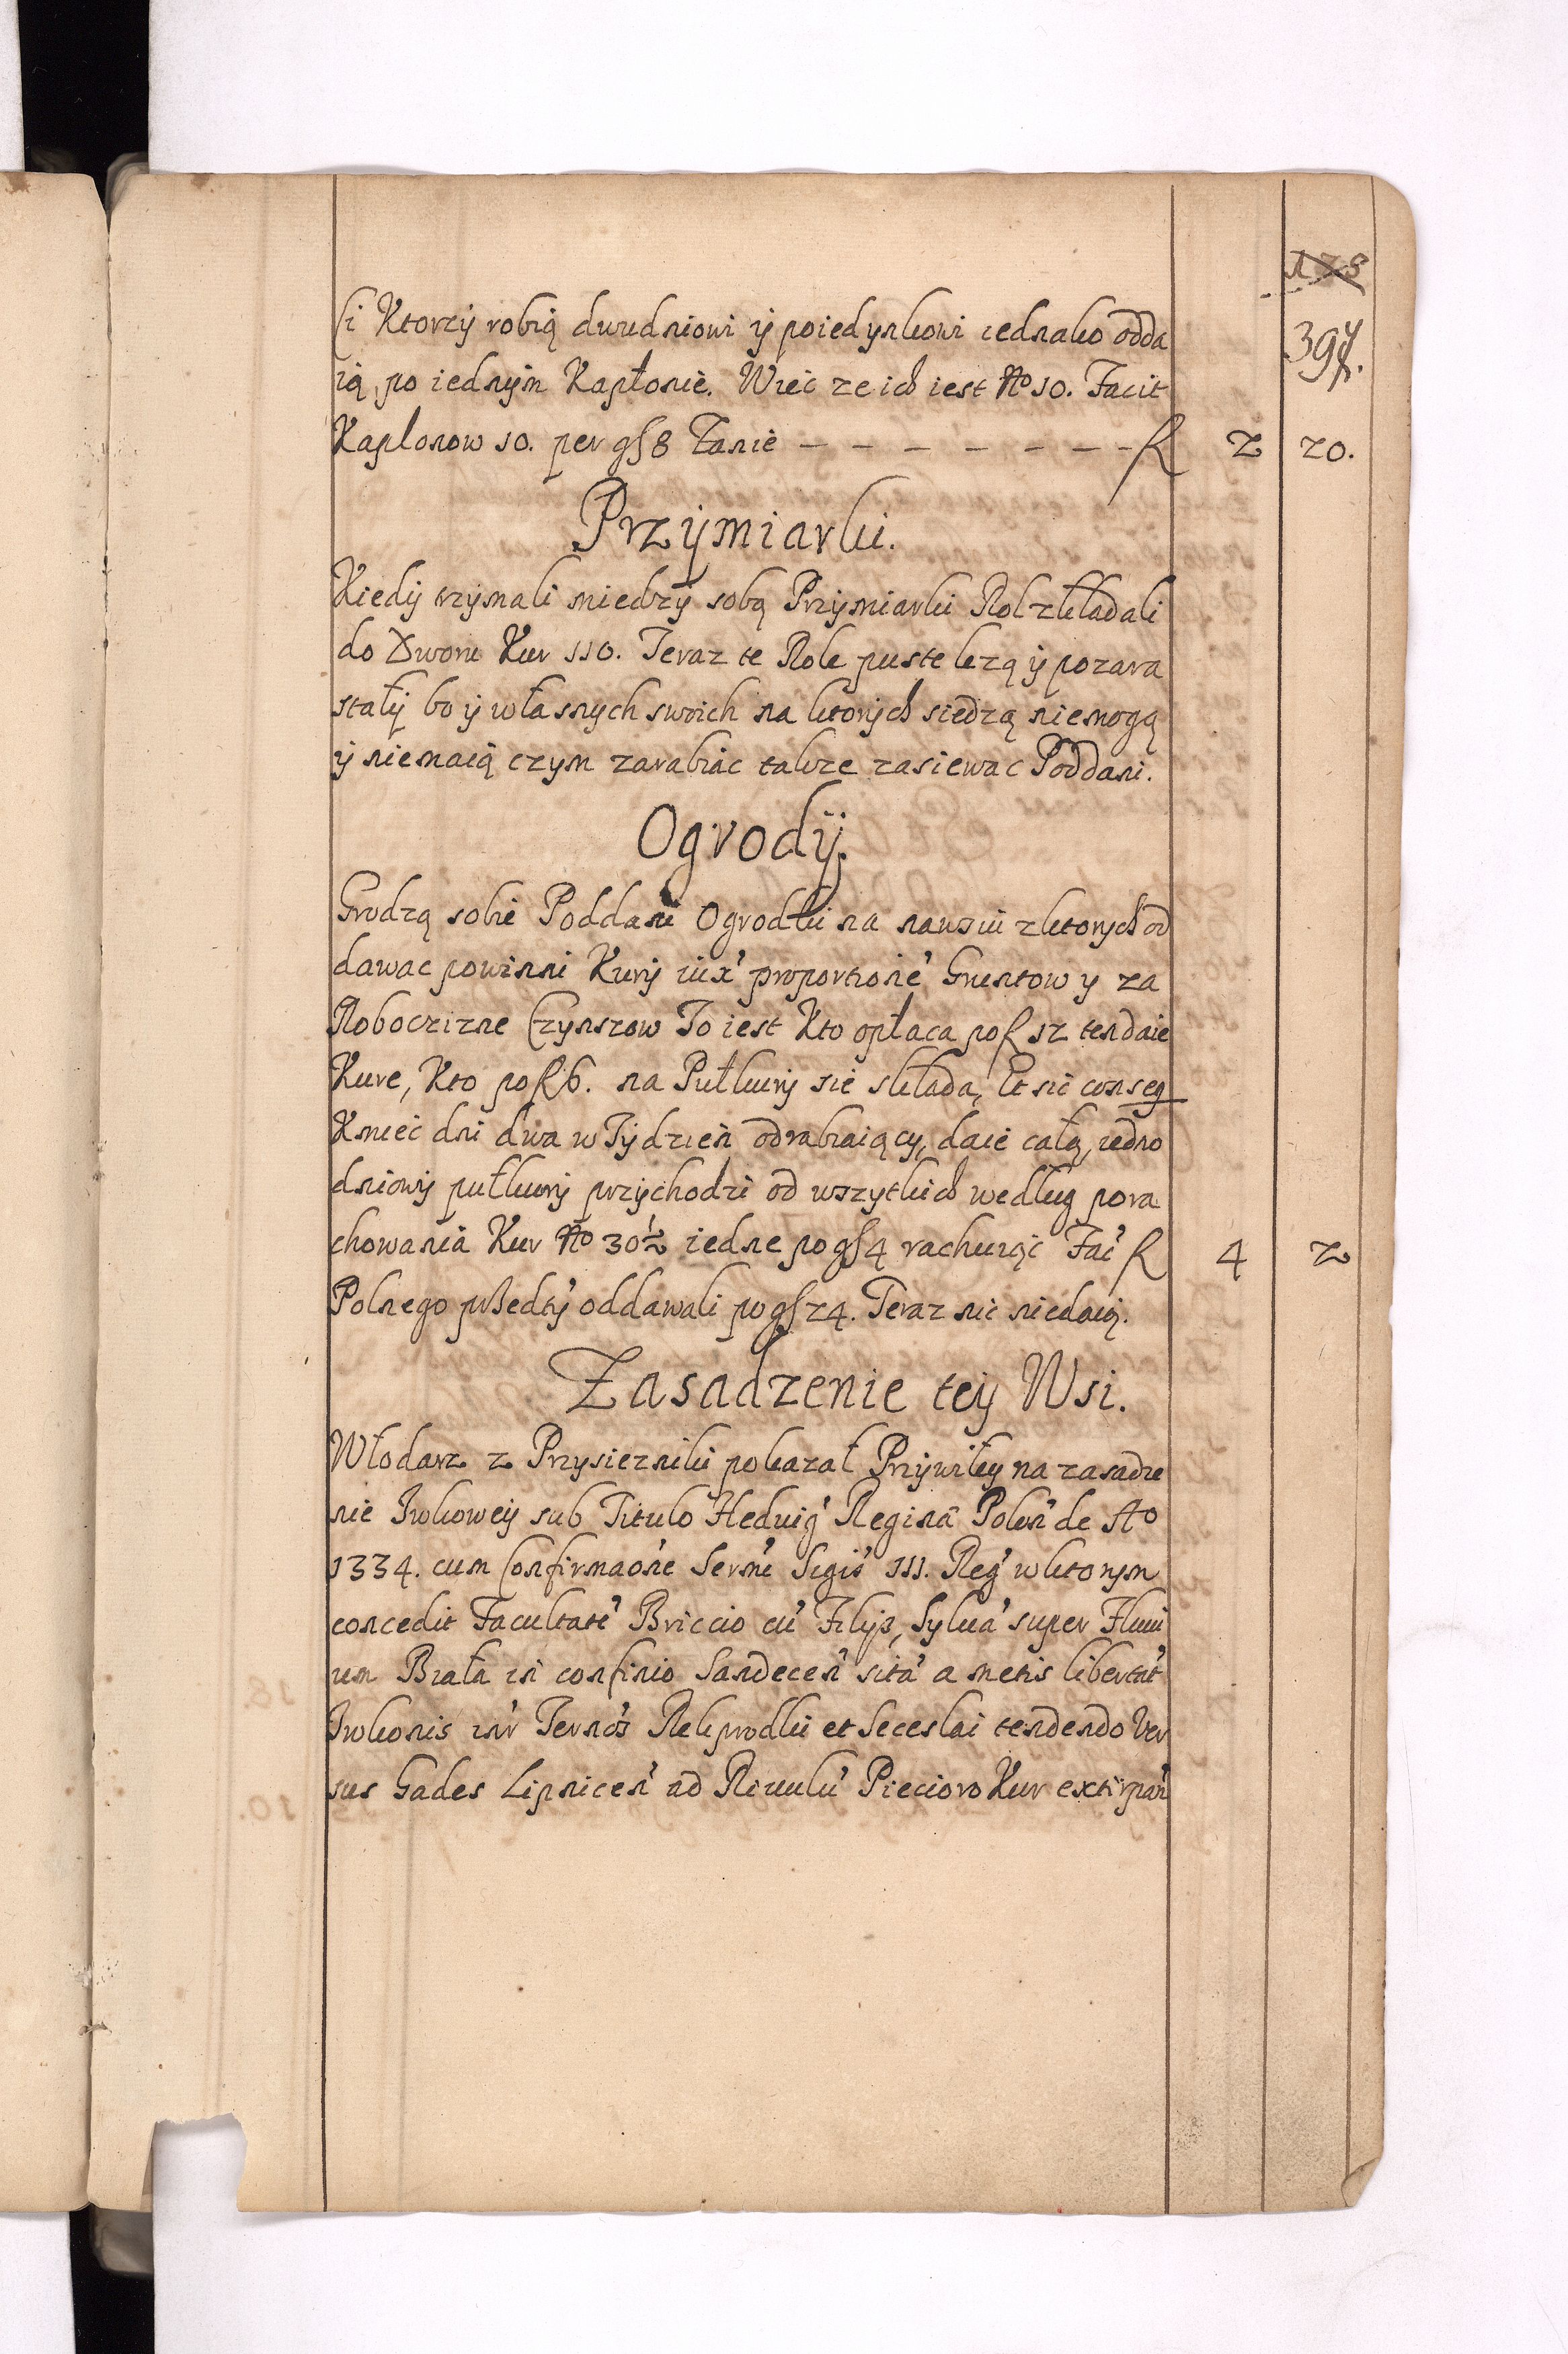 397.
Ci Ktorzÿ robią dwudniowi ÿ poiedynkowi iednako odda
ią, po iednÿm Kapłonie. Wiec ze ich iest No 10. Facit
Kaplonow 10. per gſ 8 Łanie — — — — — — — f 2 20.
Przÿmiarki.
Kiedÿ trzÿmali miedzÿ sobą Przÿmiarki Rol zkładali
do Dworu Kur 110. Teraz te Role puste lezą ÿ pozara
stałÿ bo ÿ własnych swoich na ktorÿch siedzą niemogą
ÿ niemaią czym zarabiac takze zasiewac Poddani.
Ogrodÿ.
Grodzą sobie Poddani Ogrodki na nawsiu z ktorych od
dawac powinni Kurÿ iux' proportione' Gruntow y za
Roboczizne Czynszow To iest Kto opłaca po f 12 ten daie
Kure, Kto po f 6. na Puł kurÿ sie składa, Et sic conseq
Kmiec dni dwa w Tÿdzien odrabiaiący, daie całą, iedno
dniowÿ puł kurÿ przÿchodzi od wszytkich według pora
chowania Kur No 30½ iedne po gſ 4 rachuiąc Fac' f 4 2
Polnego przedtÿ oddawali po gſ 24. Teraz nic niedaią.
Zasadzenie teÿ Wsi.
Włodarz z Przysiezniki pokazał Przÿwileÿ na zasadze
nie Iwkoweÿ sub Titulo Hedvig' Regina Polon' de Ao
1334. cum Confirmaone Sermi Sigis' III. Reg' w ktorym
concedit Facultate' Briccio cu' Filÿs, Sylua' super Fluui
um Biała in confinio Sandecen' sita' a metis libertat'
Iwkonis inr' Ternos Rekprodki et Seceslai tendendo Ver
sus Gades Lipnicen' ad Riuulu' Piecioro Kur extirpan'